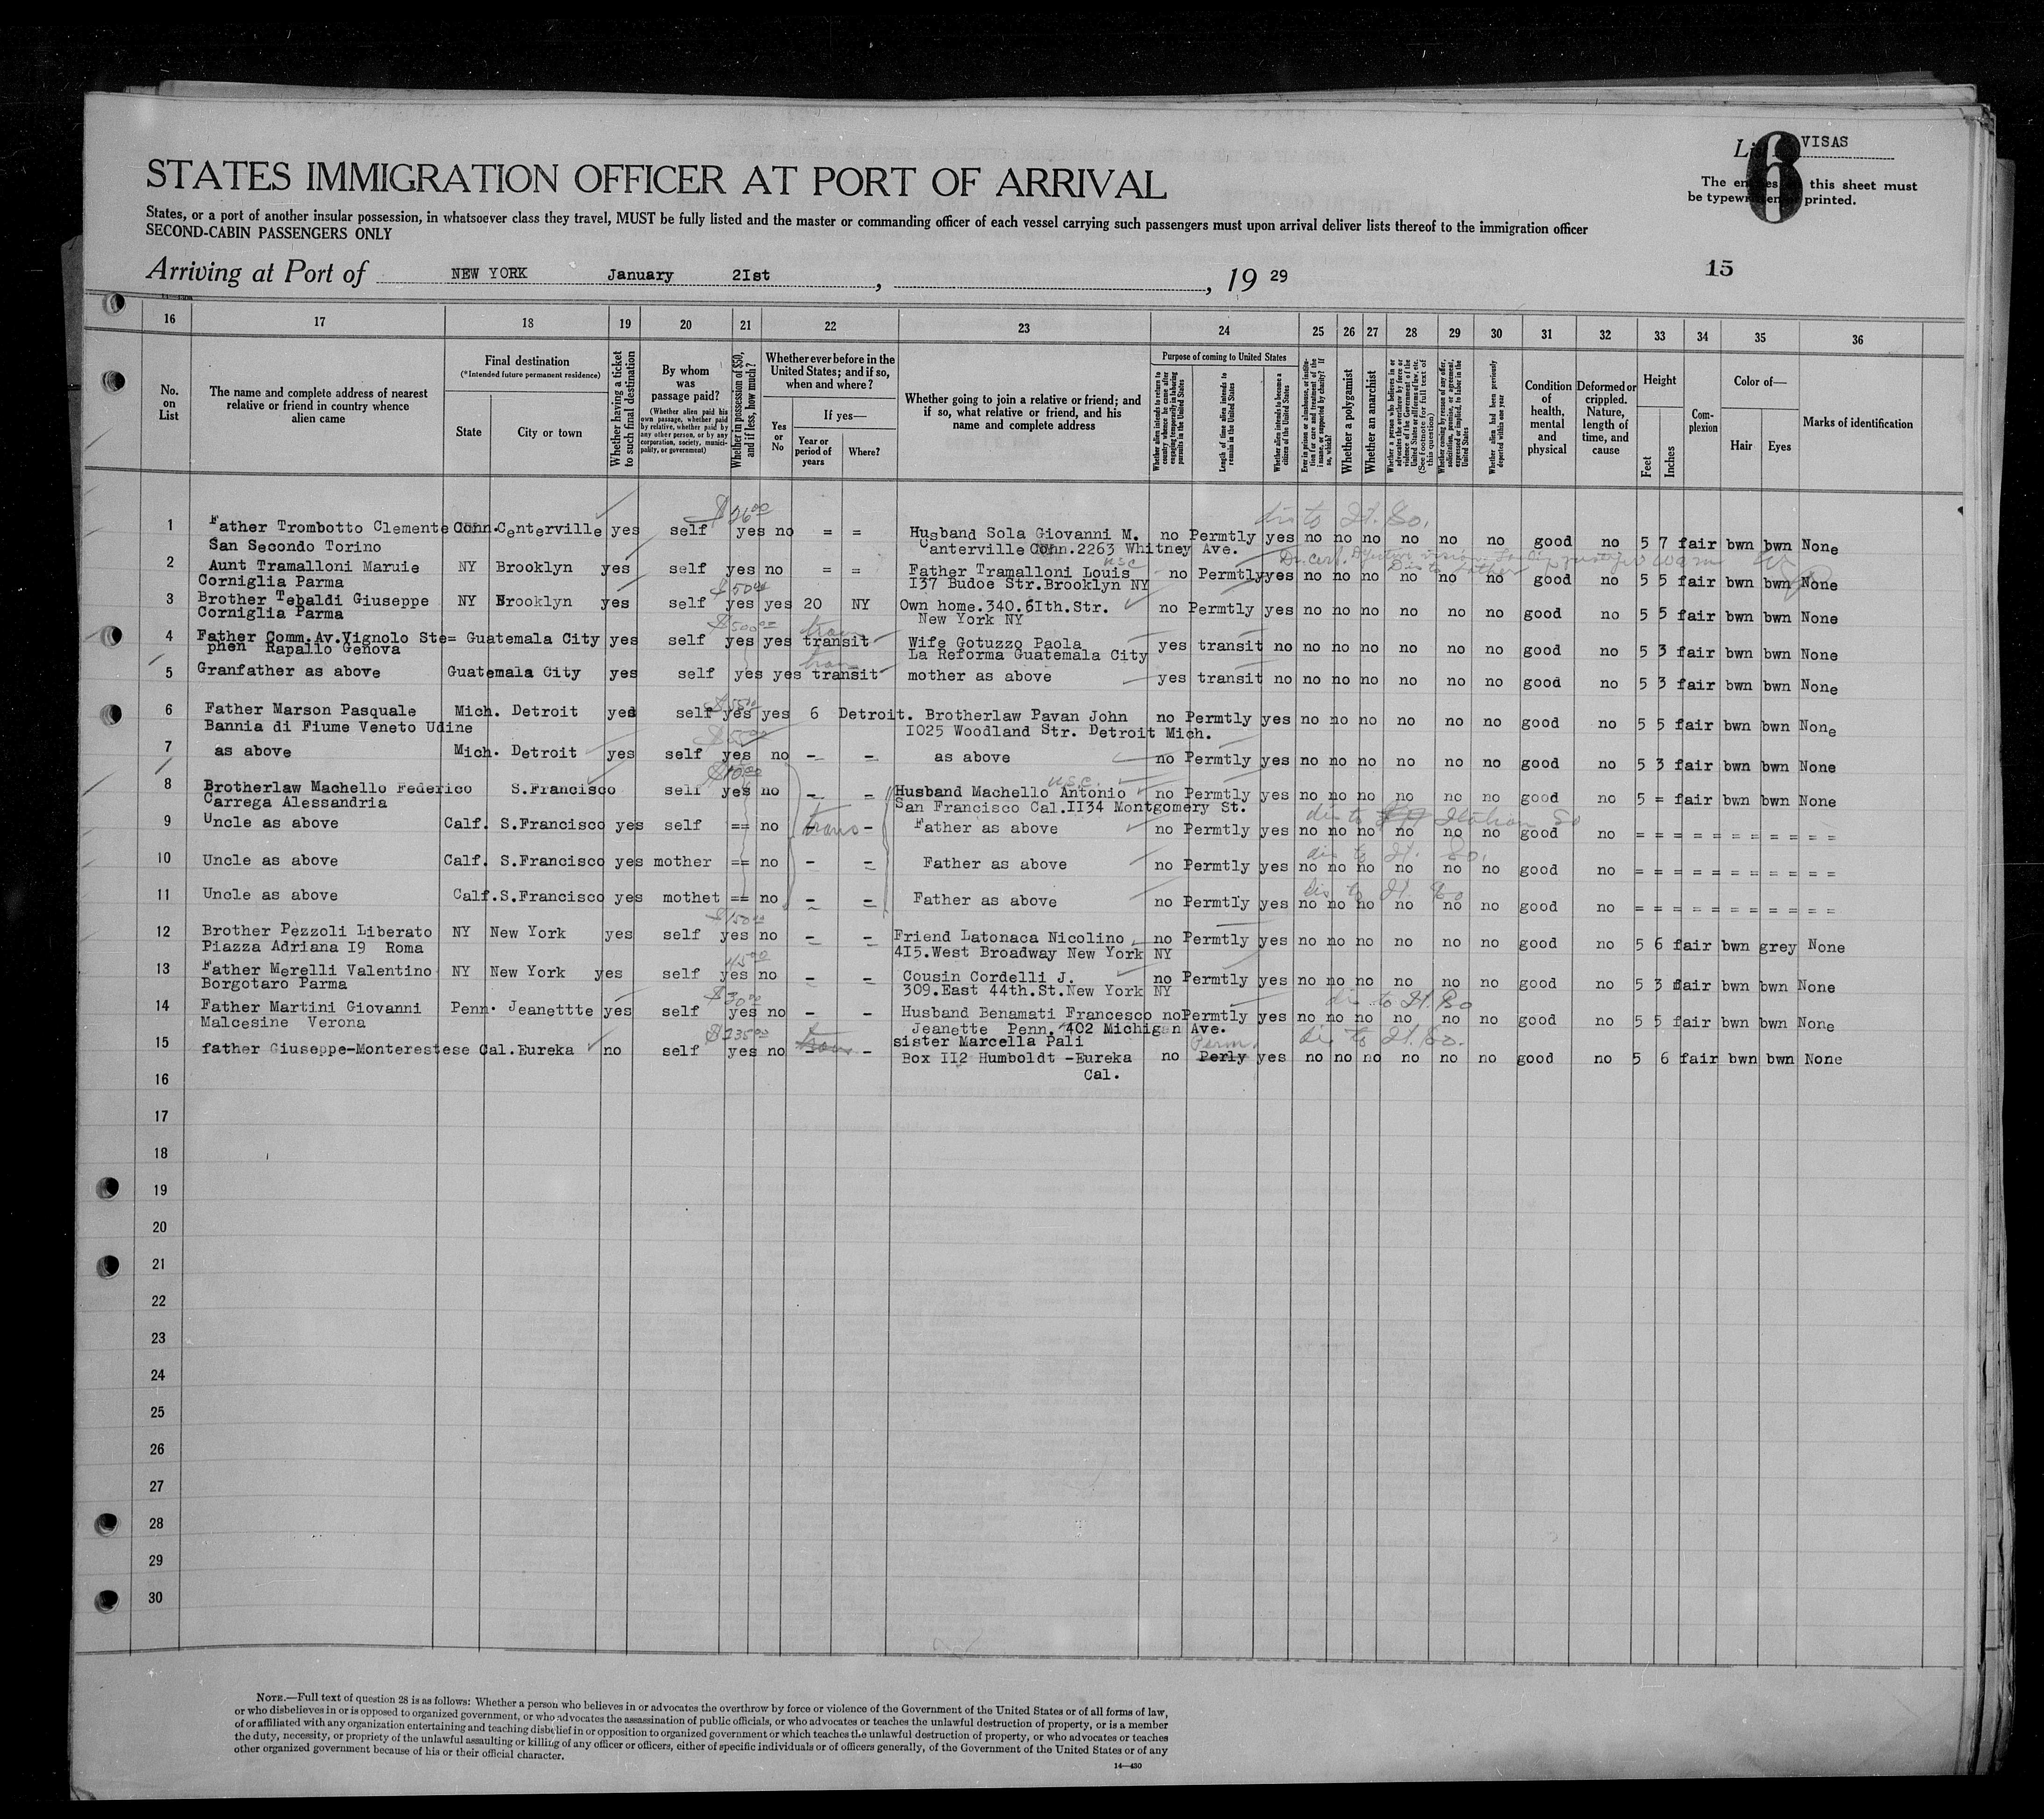 List VISAS
6
The entries on this sheet must
be typewritten or printed.
STATES IMMIGRATION OFFICER AT PORT OF ARRIVAL
States, or a port of another insular possession, in whatsoever class they travel, MUST be fully listed and the master or commanding officer of each vessel carrying such passengers must upon arrival deliver lists thereof to the immigration officer
SECOND-CABIN PASSENGERS ONLY
Arriving at Port of NEW YORK January 2Ist , , 19 29
15
16 17 18 19 20 21 22 23 24 25 26 27 28 29 30 31 32 33 34 35 36
No. on List
The name and complete address of nearest relative or friend in country whence alien came
Final destination
(*Intended future permanent residence)
State
City or town
Whether having a ticket to such final destination
By whom was passage paid?
(Whether alien paid his own passage, whether paid by relative, whether paid by any other person, or by any corporation, society, municipality, or government)
Whether in possession of $50, and if less, how much?
Whether ever before in the United States; and if so, when and where?
Yes or No
If yes—
Year or period of years
Where?
Whether going to join a relative or friend; and if so, what relative or friend, and his name and complete address
Purpose of coming to United States
Whether alien intends to return to country whence he came after engaging temporarily in laboring pursuits in the United States
Length of time alien intends to remain in the United States
Whether alien intends to become a citizen of the United States
Ever in prison or almshouse, or institution for care and treatment of the insane, or supported by charity? If so, which?
Whether a polygamist
Whether an anarchist
Whether a person who believes in or advocates the overthrow by force or violence of the Government of the United States or all forms of law, etc. (See footnote for full text of this question)
Whether coming by reason of any offer, solicitation, promise, or agreement, expressed or implied, to labor in the United States
Whether alien had been previously deported within one year
Condition of health, mental and physical
Deformed or crippled. Nature, length of time, and cause
Height
Feet
Inches
Complexion
Color of—
Hair
Eyes
Marks of identification
$26.00 dis to It. So.
1 Father Trombotto Clemente Conn. Centerville yes self yes no = = Husband Sola Giovanni M. no Permtly yes no no no no no no good no 5 7 fair bwn bwn None
San Secondo Torino Canterville Conn.2263 Whitney Ave.
usc
Dis to father
2 Aunt Tramalloni Maruie NY Brooklyn yes self yes no = = Father Tramalloni Louis no Permtly yes no no no no no no good no 5 5 fair bwn bwn None
Corniglia Parma I37 Budoe Str.Brooklyn NY
$50.00
3 Brother Tebaldi Giuseppe NY Brooklyn yes self yes yes 20 NY Own home.340.6Ith.Str. no Permtly yes no no no no no no good no 5 5 fair bwn bwn None
Corniglia Parma New York NY
$500.00 tran
4 Father Comm.Av.Vignolo Ste= Guatemala City yes self yes yes transit Wife Gotuzzo Paola yes transit no no no no no no no good no 5 3 fair bwn bwn None
phen Rapallo Genova La Reforma Guatemala City
tran
5 Granfather as above Guatemala City yes self yes yes transit mother as above yes transit no no no no no no no good no 5 3 fair bwn bwn None
6 Father Marson Pasquale Mich. Detroit yes self yes yes 6 Detroit. Brotherlaw Pavan John no Permtly yes no no no no no no good no 5 5 fair bwn bwn None
Bannia di Fiume Veneto Udine I025 Woodland Str. Detroit Mich.
7 as above Mich. Detroit yes self yes no - - as above no Permtly yes no no no no no no good no 5 3 fair bwn bwn None
$10.00 usc.
8 Brotherlaw Machello Federico S.Francisco self yes no - - Husband Machello Antonio no Permtly yes no no no no no no good no 5 = fair bwn bwn None
Carrega Alessandria San Francisco Cal.II34 Montgomery St.
trans dis to Italian So
9 Uncle as above Calf. S.Francisco yes self == no - Father as above no Permtly yes no no no no no no good no = = = = = = = = = =
dis to It. So.
10 Uncle as above Calf. S.Francisco yes mother == no - - Father as above no Permtly yes no no no no no no good no = = = = = = = = = =
Dis to It. So
11 Uncle as above Calf.S.Francisco yes mothet == no - - Father as above no Permtly yes no no no no no no good no = = = = = = = = = =
$150.00
12 Brother Pezzoli Liberato NY New York yes self yes no - - Friend Latonaca Nicolino no Permtly yes no no no no no no good no 5 6 fair bwn grey None
Piazza Adriana I9 Roma 4I5.West Broadway New York NY
45.00
13 Father Merelli Valentino NY New York yes self yes no - - Cousin Cordelli J. no Permtly yes no no no no no no good no 5 3 fair bwn bwn None
Borgotaro Parma 309.East 44th.St.New York NY
$30.00 dis to It. So
14 Father Martini Giovanni Penn. Jeanettte yes self yes no - - Husband Benamati Francesco no Permtly yes no no no no no no good no 5 5 fair bwn bwn None
Malcesine Verona Jeanette Penn. 402 Michigan Ave.
$235.00 trans Perm. Dis to It. So.
15 father Giuseppe-Monterestese Cal.Eureka no self yes no - - sister Marcella Pali no Perly yes no no no no no no good no 5 6 fair bwn bwn None
Box II2 Humboldt -Eureka
Cal.
16
17
18
19
20
21
22
23
24
25
26
27
28
29
30
NOTE.—Full text of question 28 is as follows: Whether a person who believes in or advocates the overthrow by force or violence of the Government of the United States or of all forms of law,
or who disbelieves in or is opposed to organized government, or who advocates the assassination of public officials, or who advocates or teaches the unlawful destruction of property, or is a member
of or affiliated with any organization entertaining and teaching disbelief in or opposition to organized government or which teaches the unlawful destruction of property, or who advocates or teaches
the duty, necessity, or propriety of the unlawful assaulting or killing of any officer or officers, either of specific individuals or of officers generally, of the Government of the United States or of any
other organized government because of his or their official character.
14—430